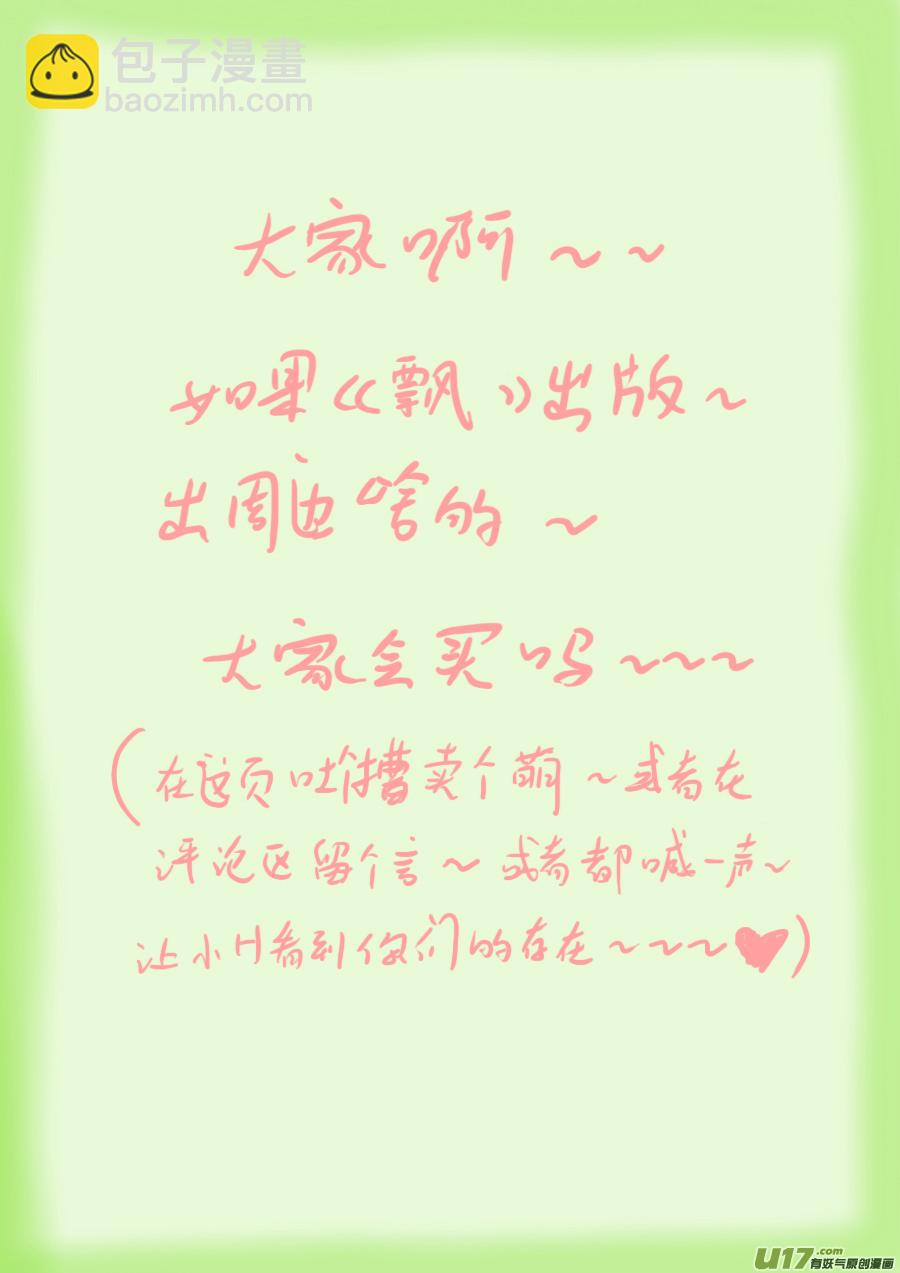 包子漫畫
baozimh.com
大家啊~~
如果《飘》出版~
出周边啥的~
大家会买吗~~~
(在这页吐槽卖个萌~或者在
评论区留个言~或者都喊一声~
让小H看到你们的存在~~~♥)
U17.com
有妖气原创漫画